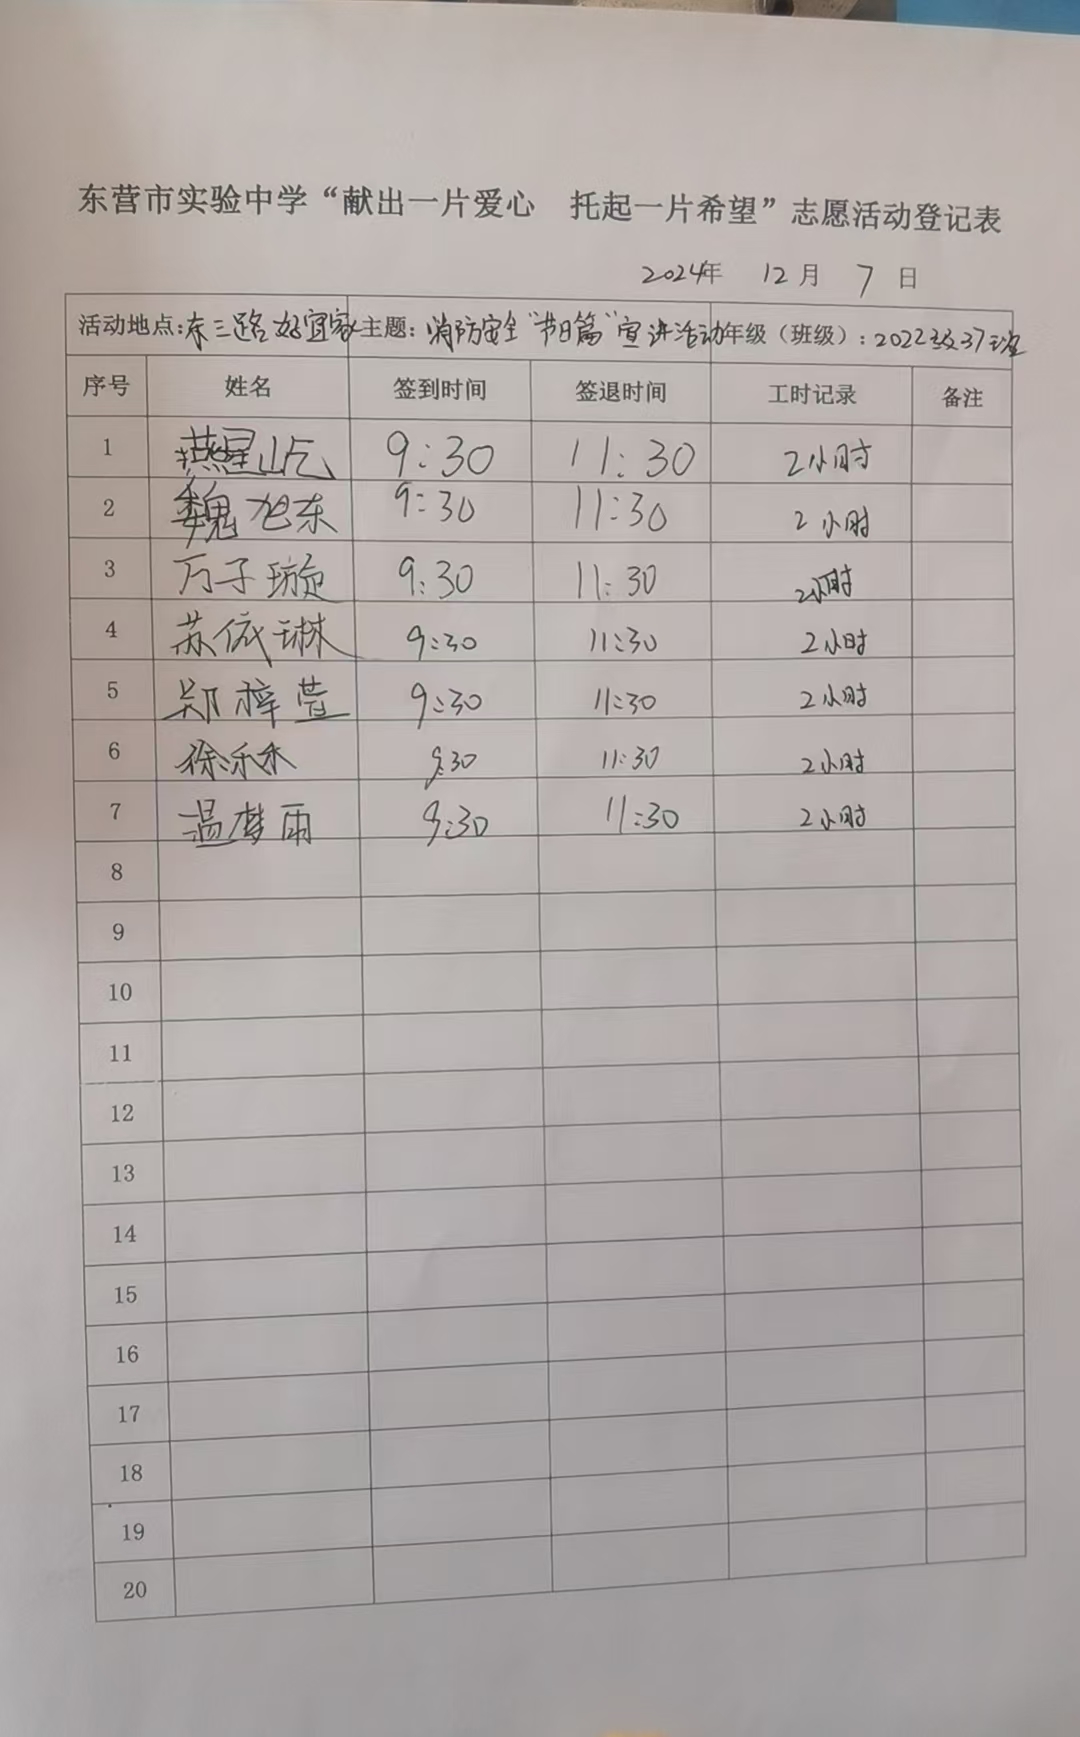 东营市实验中学“献出一片爱心 托起一片希望”志愿活动登记表
2024年 12月 7日
活动地点:东三路好宜家 主题:消防安全“节日篇”宣讲活动 年级(班级):2022级37班
序号 姓名 签到时间 签退时间 工时记录 备注
1 燕星屹 9:30 11:30 2小时
2 魏旭东 9:30 11:30 2小时
3 万子璇 9:30 11:30 2小时
4 苏依琳 9:30 11:30 2小时
5 郑梓萱 9:30 11:30 2小时
6 徐 9:30 11:30 2小时
7 温梦雨 9:30 11:30 2小时
8
9
10
11
12
13
14
15
16
17
18
19
20